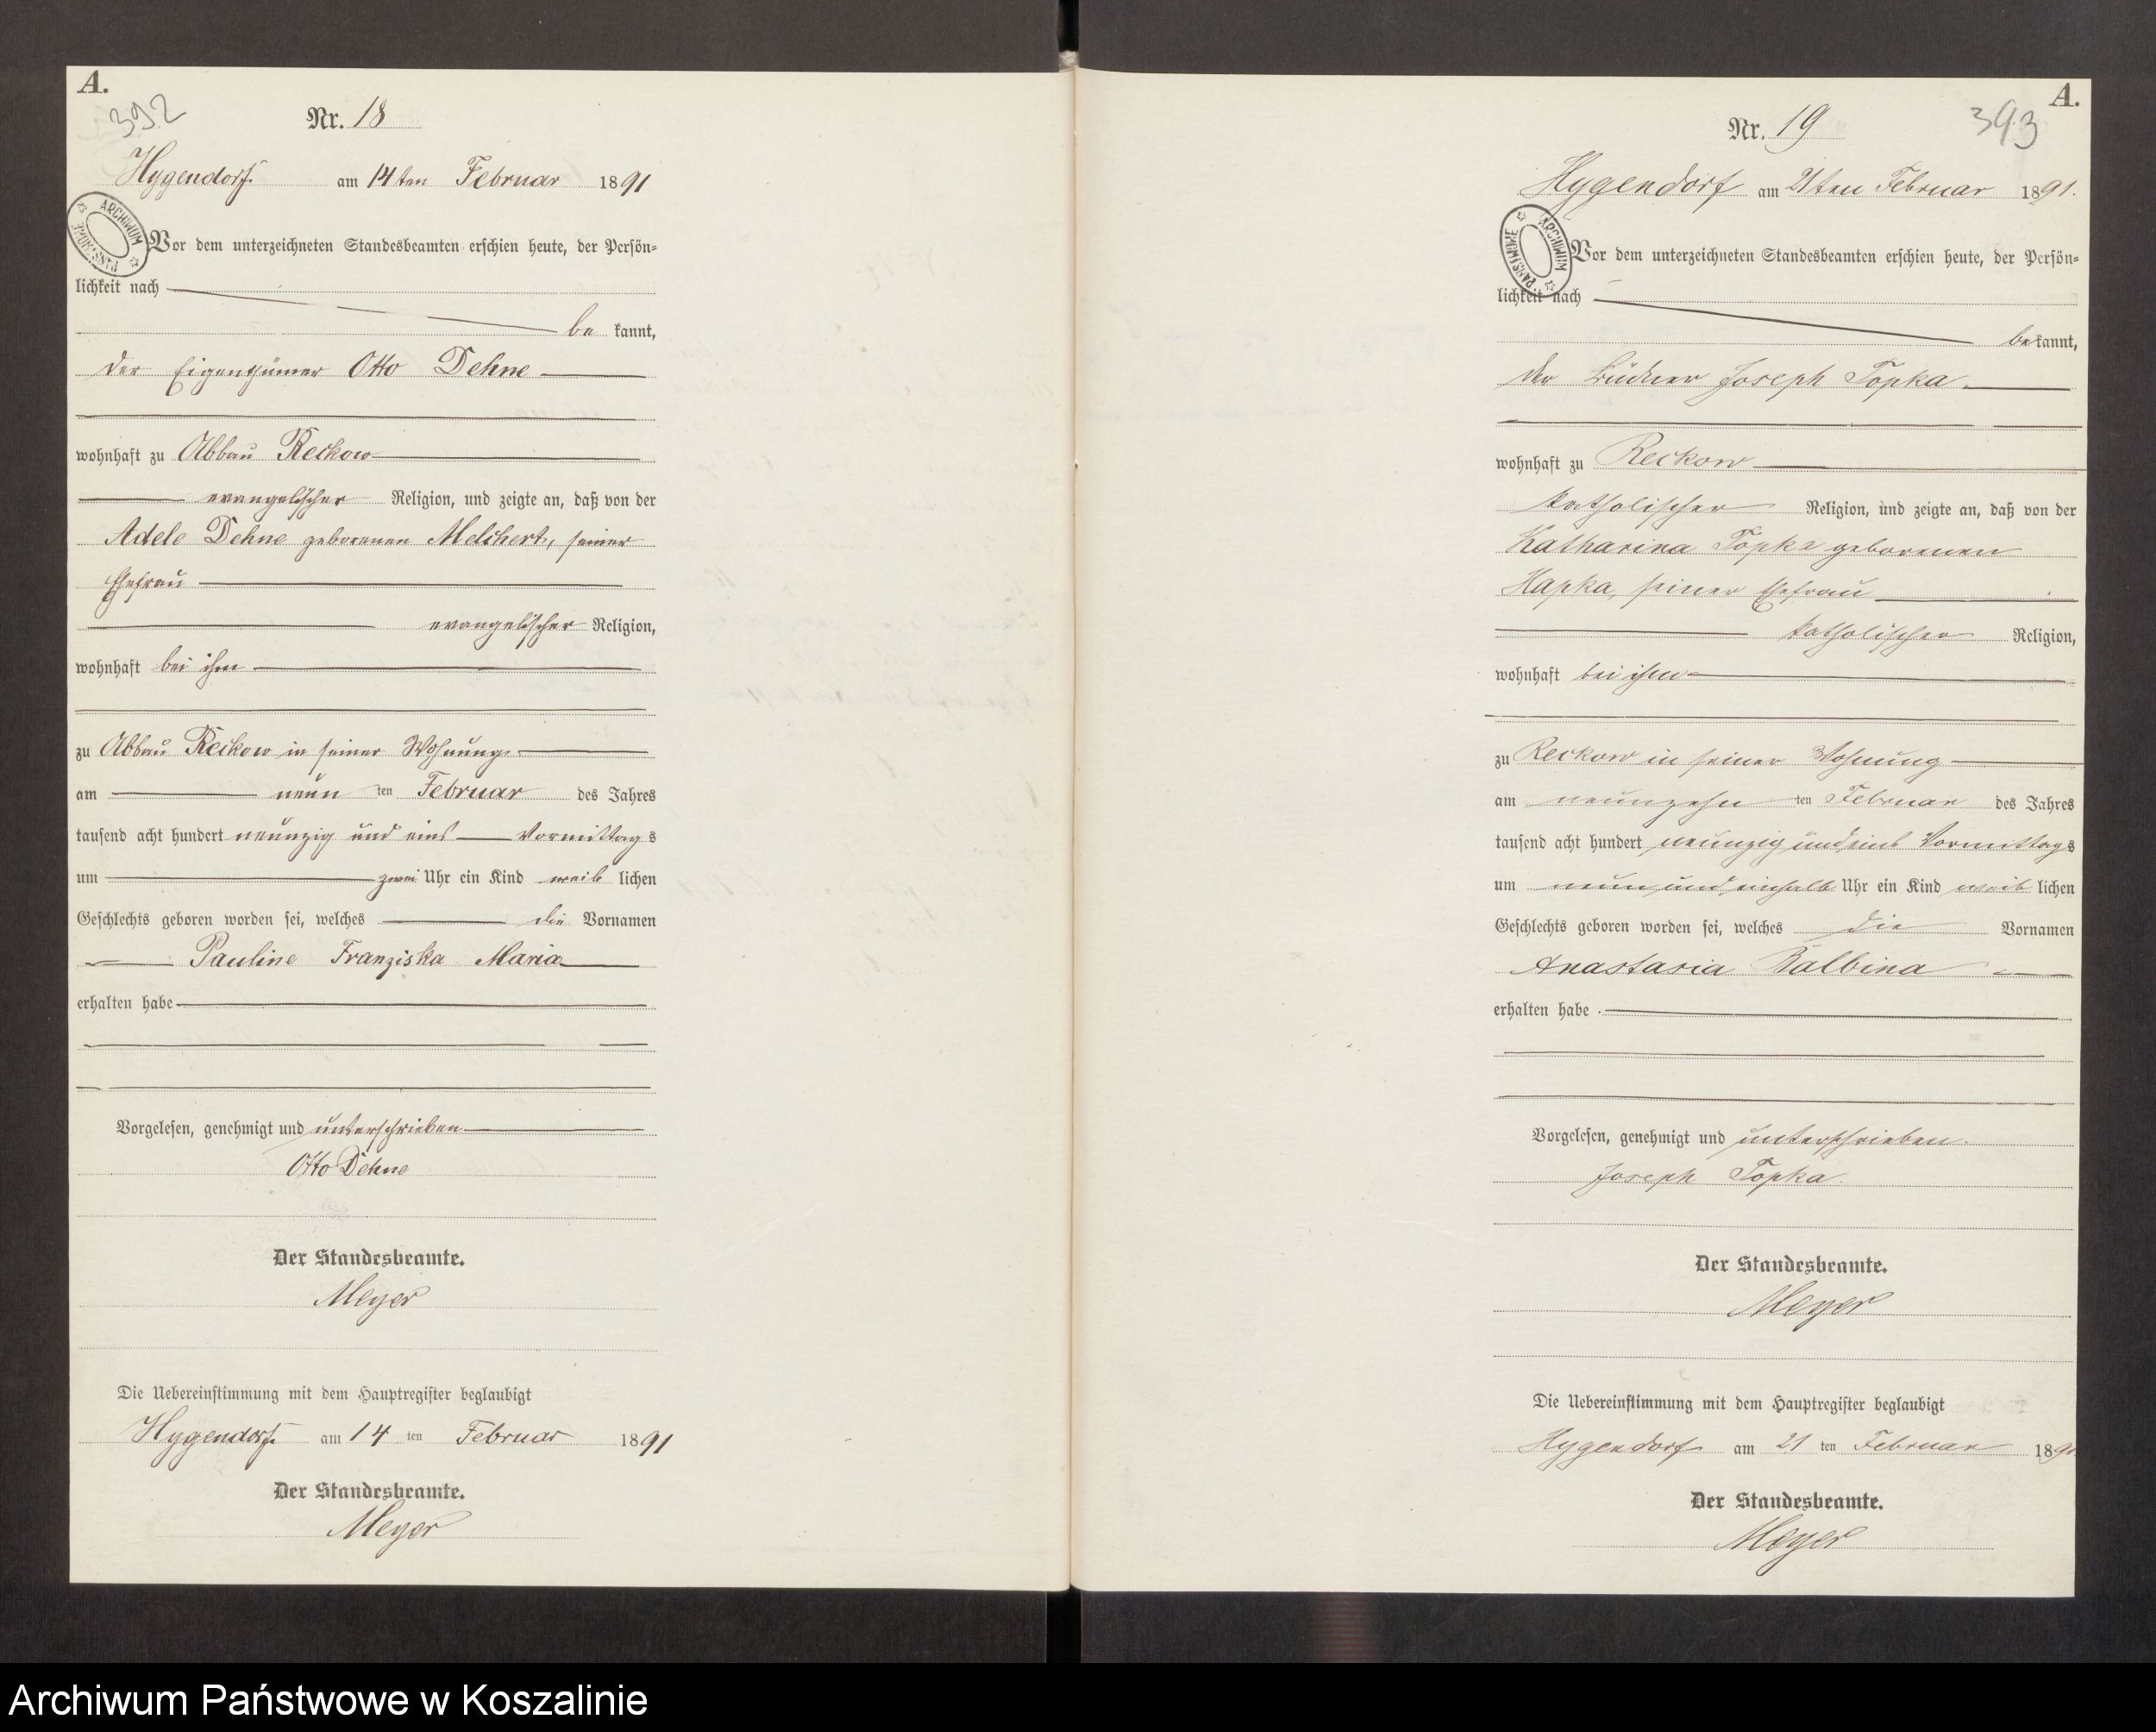 A.
392
Nr. 18
Hygendorf am 14ten Februar 1891
ARCHIWUM PAŃSTWOWE
Vor dem unterzeichneten Standesbeamten erschien heute, der Persön=
lichkeit nach
be kannt,
der Eigenthümer Otto Dehne
wohnhaft zu Abbau Reckow
evangelischer Religion, und zeigte an, daß von der
Adele Dehne geborenen Melchert, seiner
Ehefrau
evangelischer Religion,
wohnhaft bei ihm
zu Abbau Reckow in seiner Wohnung
am neun ten Februar des Jahres
tausend acht hundert neunzig und eins Vormittag s
um zwei Uhr ein Kind weib lichen
Geschlechts geboren worden sei, welches die Vornamen
Pauline Franziska Maria
erhalten habe
Vorgelesen, genehmigt und unterschrieben
Otto Dehne
Der Standesbeamte.
Meyer
Die Uebereinstimmung mit dem Hauptregister beglaubigt
Hygendorf am 14 ten Februar 1891
Der Standesbeamte.
Meyer
A.
393
Nr. 19
Hygendorf am 21ten Februar 1891.
ARCHIWUM PAŃSTWOWE
Vor dem unterzeichneten Standesbeamten erschien heute, der Persön=
lichkeit nach
bekannt,
der Büdner Joseph Topka
wohnhaft zu Reckow
katholischer Religion, und zeigte an, daß von der
Katharina Topka geborenen
Hapka, seiner Ehefrau
katholischer Religion,
wohnhaft bei ihm
zu Reckow in seiner Wohnung
am neunzehn ten Februar des Jahres
tausend acht hundert neunzig und eins Vormittags
um neun und einhalb Uhr ein Kind weib lichen
Geschlechts geboren worden sei, welches die Vornamen
Anastasia Balbina
erhalten habe
Vorgelesen, genehmigt und unterschrieben.
Joseph Topka.
Der Standesbeamte.
Meyer
Die Uebereinstimmung mit dem Hauptregister beglaubigt
Hygendorf am 21 ten Februar 1891
Der Standesbeamte.
Meyer
Archiwum Państwowe w Koszalinie